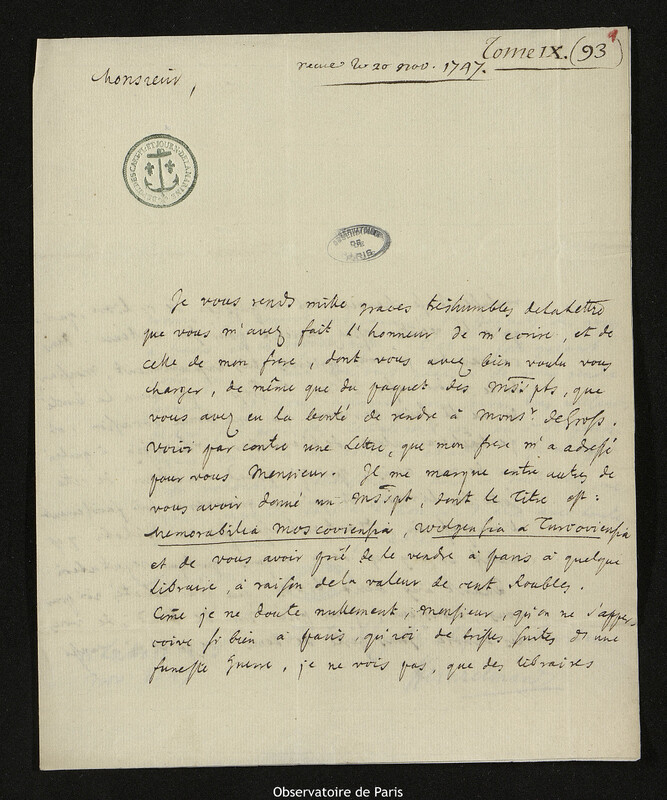 Tome IX. (93
reçue le 20 nov. 1747.
Monsieur,
OBSERVATOIRE
DE
PARIS
Je vous rends mille graces treshumbles dela Lettre
que vous m'avez fait l'honneur de m'ecrire, et de
celle de mon frere, dont vous avez bien voulu vous
charger, de même que du paquet des Msspts, que
vous avez eu la bonté de rendre à Monsr. de Gross.
Voici par contre une Lettre, que mon frere m'a adressé
pour vous Monsieur. Il me marque entre autres de
vous avoir donné un Msspt, dont le Titre est:
Memorabilia Moscoviensia, Wolgensia a Turcoviensia
et de vous avoir prié de le vendre à paris à quelque
libraire, à raison dela valeur de cent Roubles.
Come je ne doute nullement, monsieur, qu'on ne s'apper-
coive si bien à paris, qu'ici de tristes suites d'une
funeste Guerre, je ne vois pas, que des libraires
Observatoire de Paris